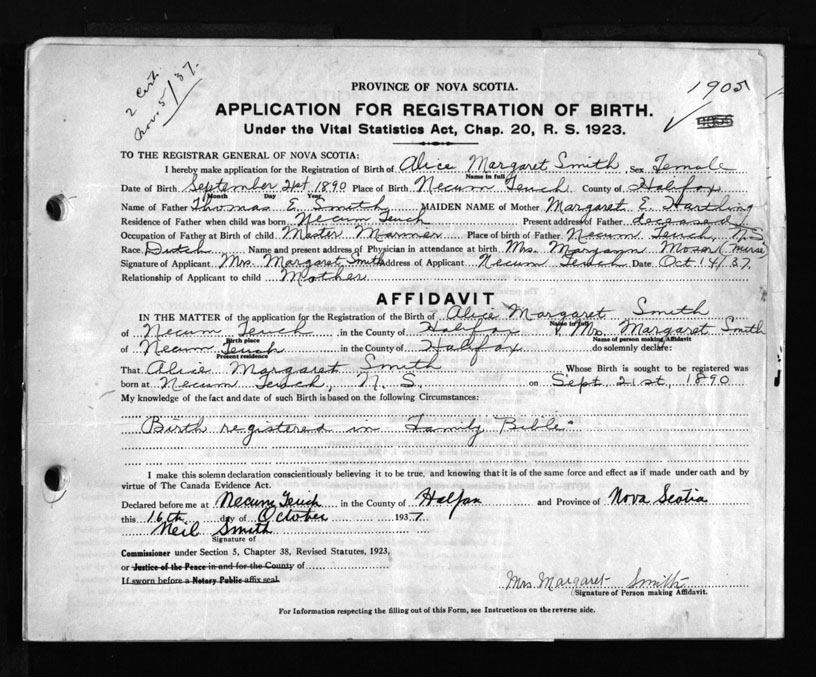 2 Cert.
Nov. 5/37.
1905
PROVINCE OF NOVA SCOTIA.
APPLICATION FOR REGISTRATION OF BIRTH.
Under the Vital Statistics Act, Chap. 20, R. S. 1923.
TO THE REGISTRAR GENERAL OF NOVA SCOTIA:
I hereby make application for the Registration of Birth of Alice Margaret Smith, Sex Female
Name in full
Date of Birth September 21st 1890 Place of Birth Necum Teuch County of Halifax
Month Day Year
Name of Father Thomas E. Smith MAIDEN NAME of Mother Margaret E. Hartling
Residence of Father when child was born Necum Teuch Present address of Father deceased
Occupation of Father at Birth of child Master Mariner Place of birth of Father Necum Teuch, N.S.
Race Dutch Name and present address of Physician in attendance at birth Mrs. Maryann Moser (nurse)
Signature of Applicant Mrs. Margaret Smith Address of Applicant Necum Teuch Date Oct 14/37.
Relationship of Applicant to child Mother
AFFIDAVIT
IN THE MATTER of the application for the Registration of the Birth of Alice Margaret Smith
Name in full
of Necum Teuch, in the County of Halifax I, Mrs. Margaret Smith
Birth place Name of person making Affidavit
of Necum Teuch in the County of Halifax do solemnly declare:
Present residence
That Alice Margaret Smith Whose Birth is sought to be registered was
born at Necum Teuch, N.S. on Sept 21st, 1890
My knowledge of the fact and date of such Birth is based on the following Circumstances:
Birth registered in Family Bible
I make this solemn declaration conscientiously believing it to be true, and knowing that it is of the same force and effect as if made under oath and by
virtue of The Canada Evidence Act.
Declared before me at Necum Teuch in the County of Halifax and Province of Nova Scotia
this 16th day of October 1937.
Neil Smith
Signature of
Commissioner under Section 5, Chapter 38, Revised Statutes, 1923,
or Justice of the Peace in and for the County of
If sworn before a Notary Public affix seal.
Mrs Margaret Smith
(Signature of Person making Affidavit.
For Information respecting the filling out of this Form, see Instructions on the reverse side.